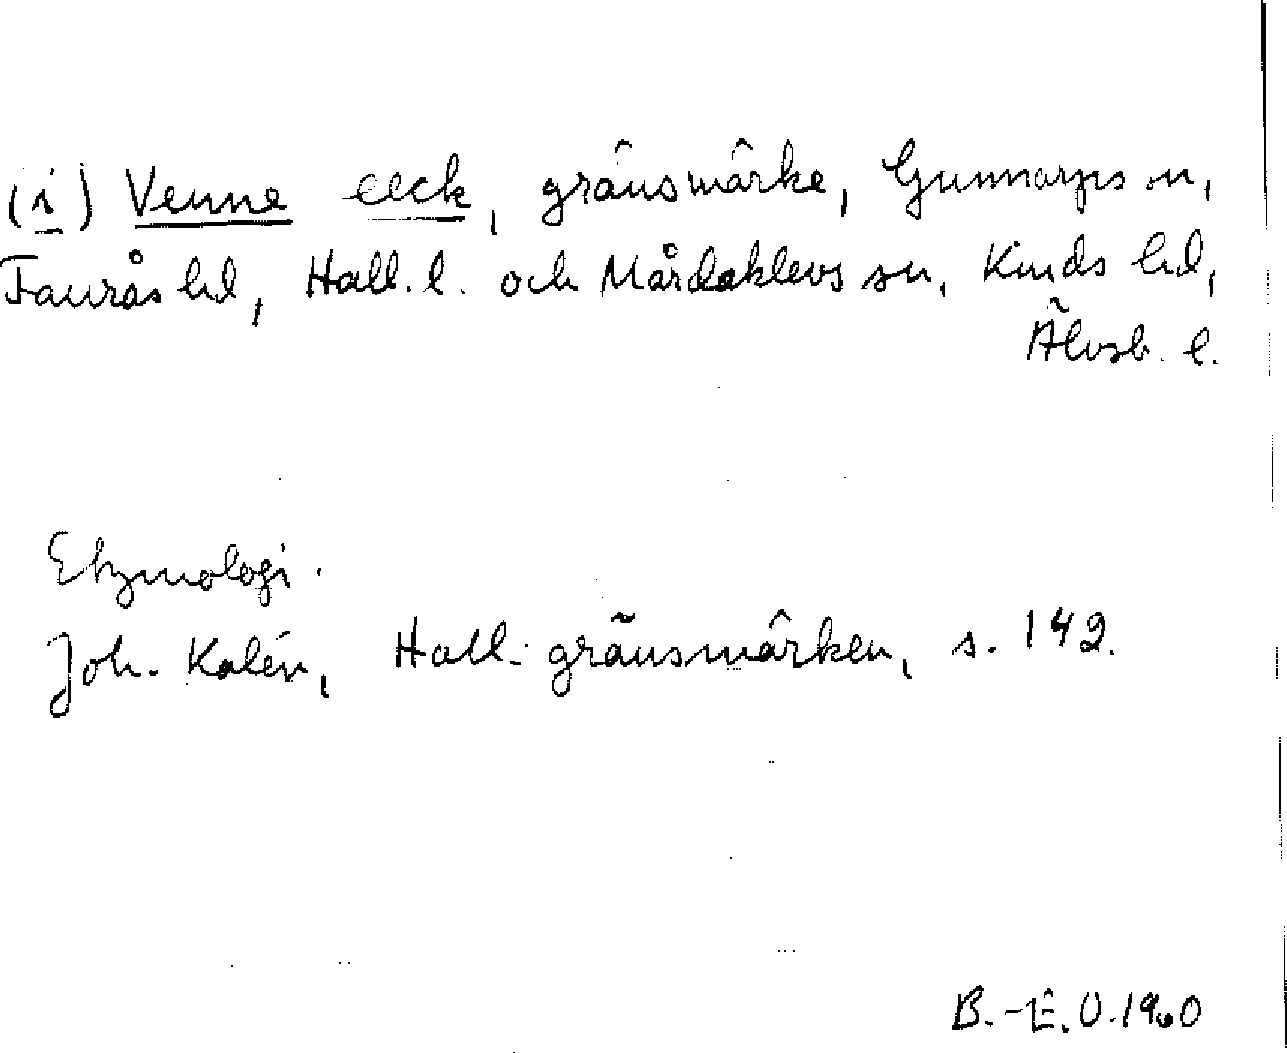 (i) Venne eeck, gränsmärke, Gunnarps sn,
Faurås hd, Hall. l. och Mårdaklevs sn, Kinds hd,
Älvsb. l.
Etymologi.
Joh. Kalén, Hall. gränsmärken, s. 142.
B.-E.O.1960